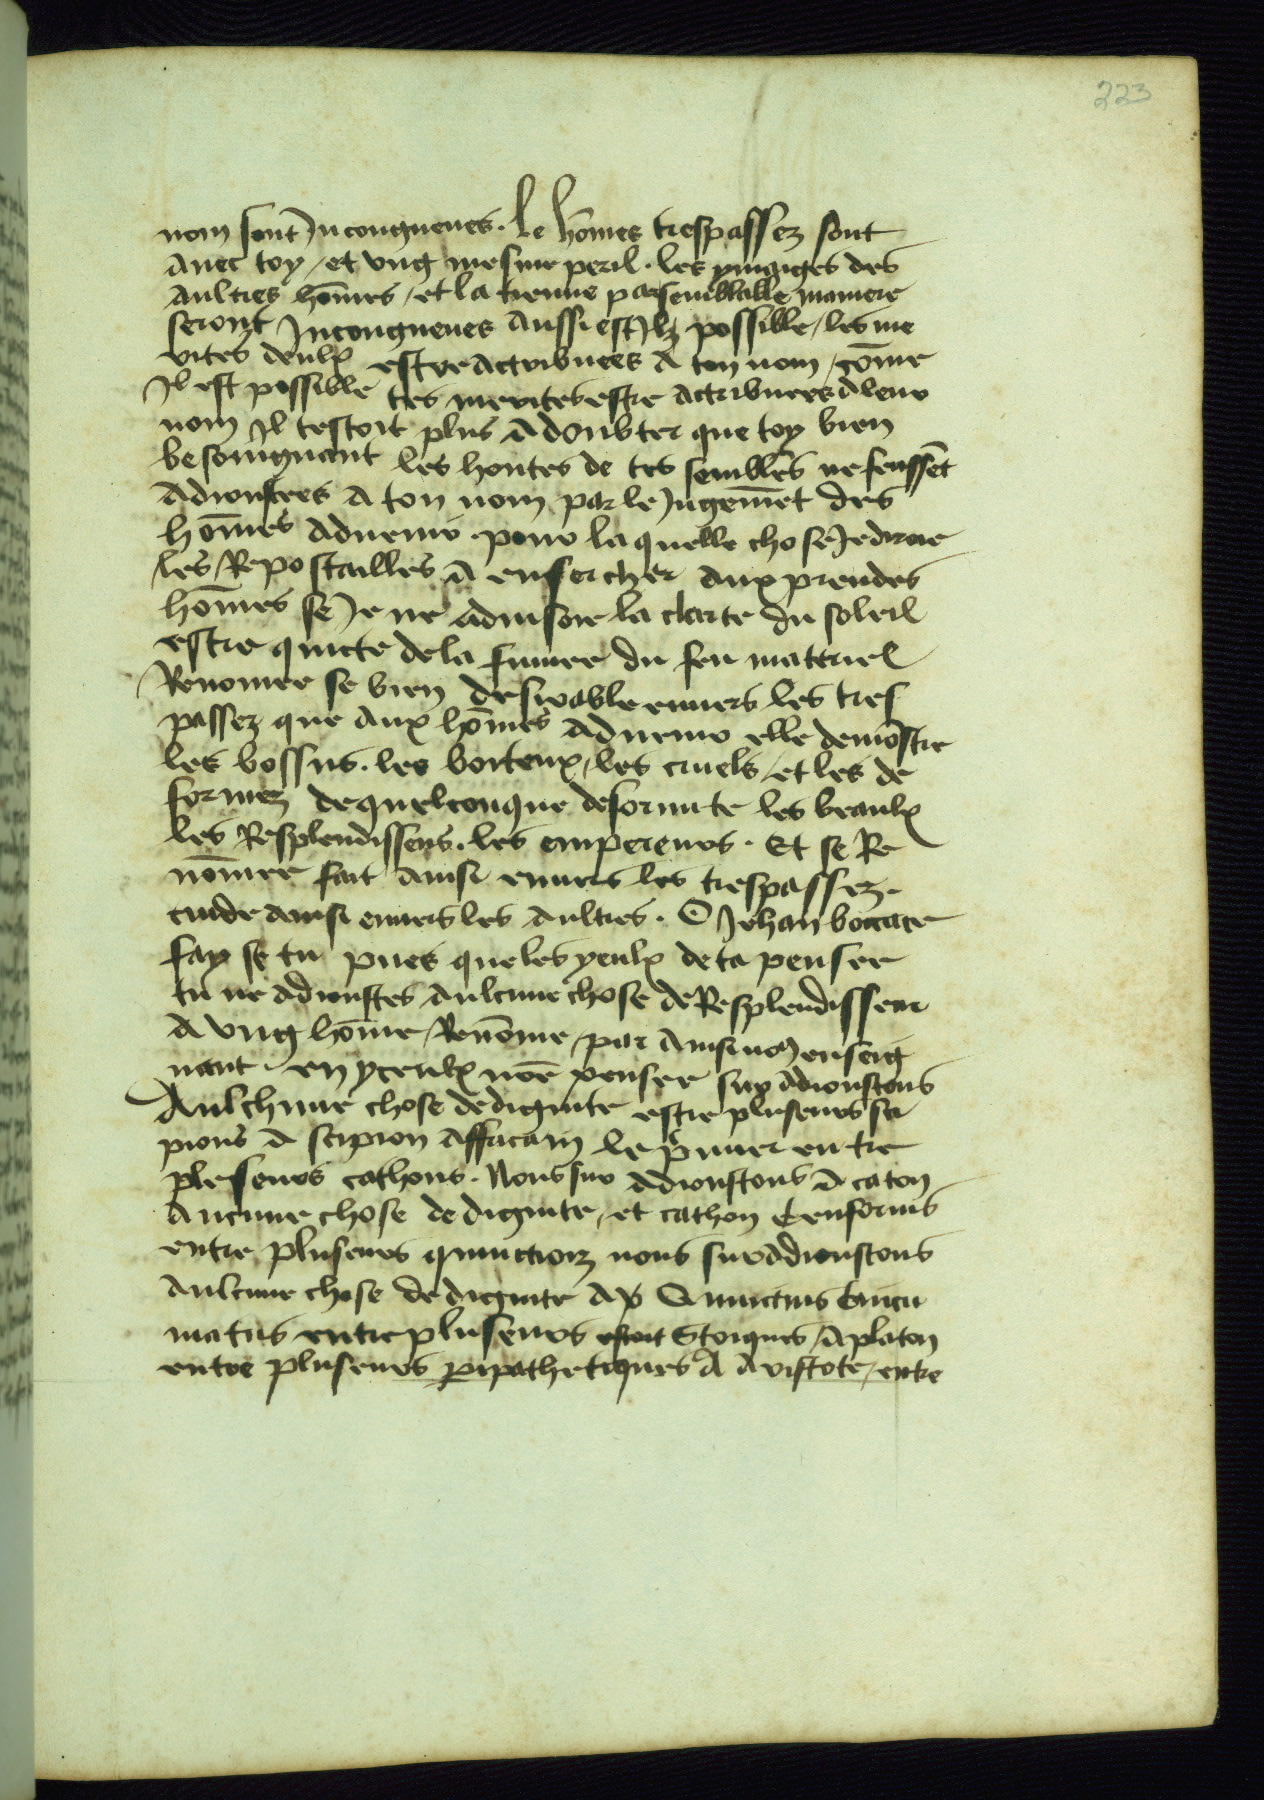 223
nom sont Incongneues. le hōmes trespassez sont
auec toy / et vng mesme peril. les ymaiges des
aultres hōmes / et la tienne par semblable maniere
seront Incongneues aussi est Ilz possible / les me
rites deulx estre actribuees a ton nom / cōme
Il est possible tes merites estre actribuees a leur
nom Il testoit plus a doubter que toy bien
besoingnant les hontes de tes sembles ne feussēt
adioustees a ton nom par le Jugemēt des
hōmes aduenir. pour la quelle chose Je diroie
les Repostailles a ensercher aux preudes
hōmes se Je ne aduisoie la clarte du soleil
estre quicte de la fumee du feu materiel
Renomee se bien desirable enuers les tres
passez que aux hōmes aduenir elle demōstre
les bossus. les boiteux / les cruels / et les de
formez de quelconque deformite les beaulx
les Resplendissens. les empereurs. Et se Re
nōmee fait ainsi enuers les trespassez.
cuide ainsi enuers les aultres. O Jehan boccace
fay se tu pues que les yeulx de ta pensee
tu ne adioustes aulcune chose de Resplendisseur
a vng hōme / Renōme / par ainsi moy enseig
nant. en yceulx nr̄e pensee suy adioustons
Aulchune chose de dignite estre pluseurs sci
pions a scipion affacain le p̄mier entre
pleseurs cathons. Nous sur adioustons a caton
aucune chose de dignite / et cathon Censorius
entre pluseurs quinctioz nous sur adioustons
aulcune chose de dignite a Quinctius Cincin
matus entre pluseurs Stoiques / a platon
entre pluseurs pipathetiques a aristote / entre